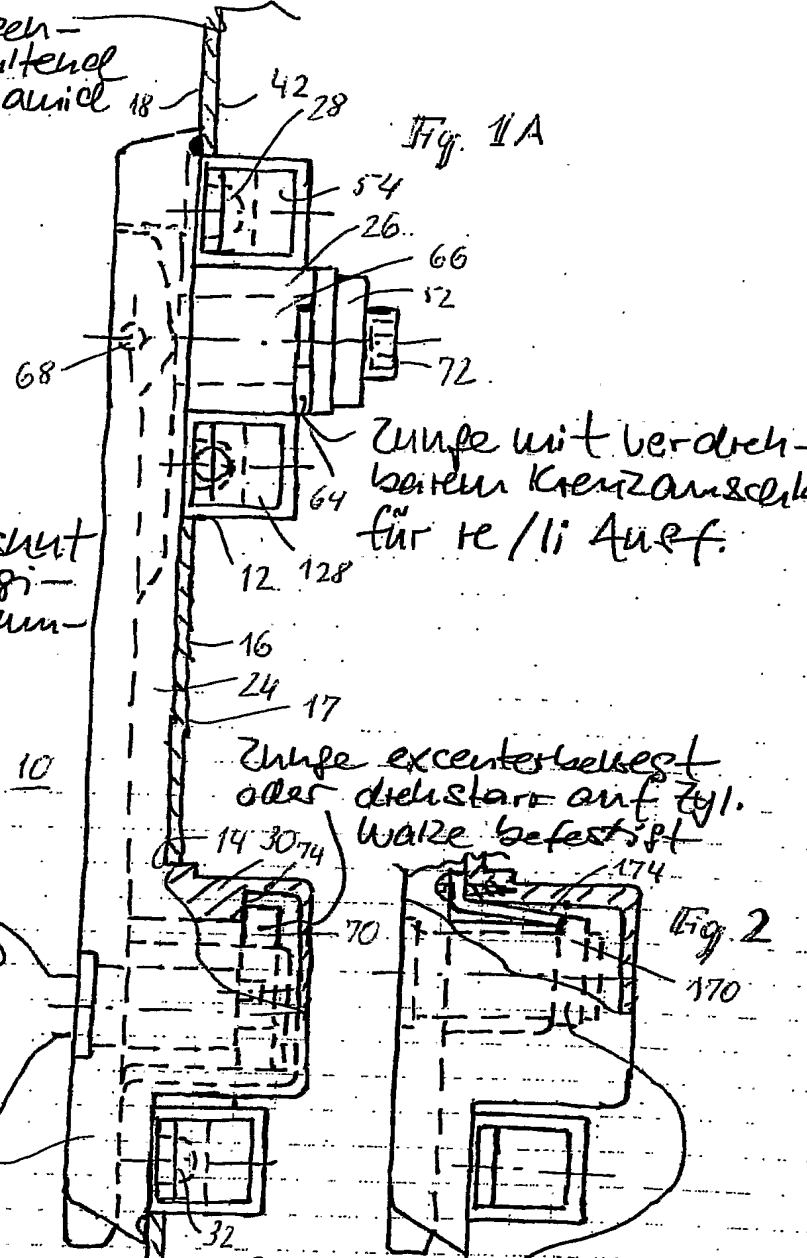 18
42
28
Fig. 1A
54
26
66
52
68
72
64
Zunge mit verdreh-
barem
für re/li Ausf.
12
128
16
24
17
10
Zunge excenterbewegt
oder drehstarr auf Zyl.
Walze befestigt
14
30
74
174
70
Fig. 2
170
32